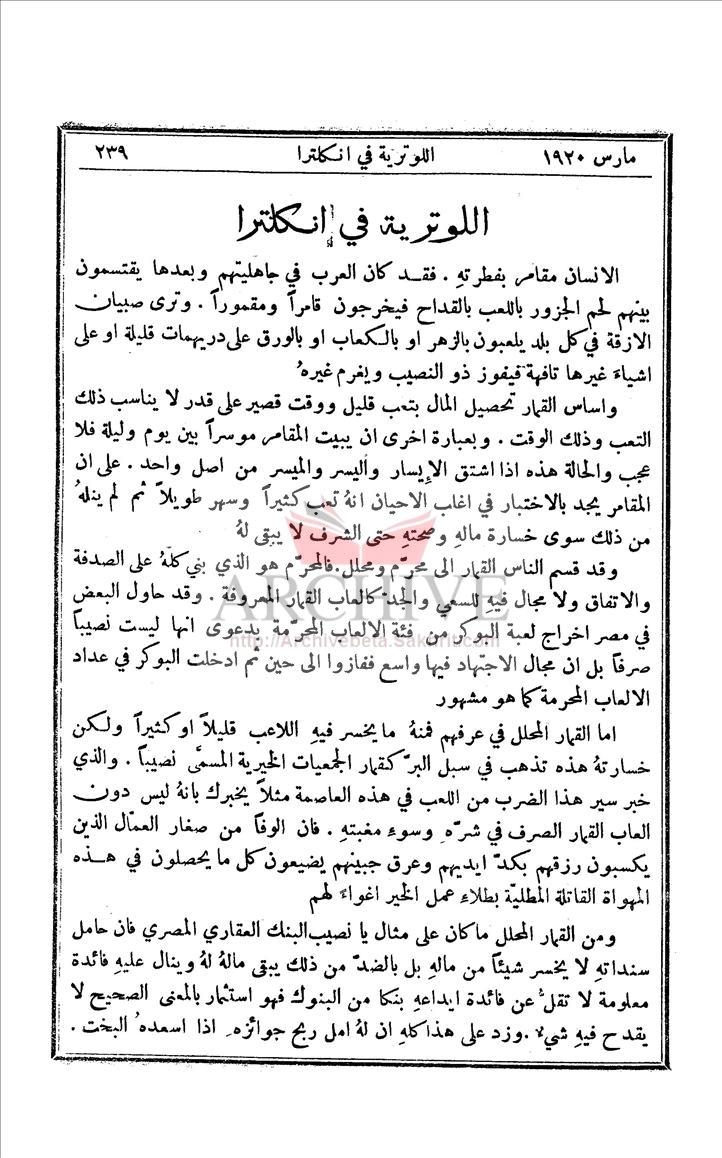 مارس ١٩٢٠ اللوترية في انكلترا ٢٣٩
اللوترية في إنكلترا
الانسان مقامر بفطرتهِ . فقد كان العرب في جاهليتهم وبعدها يقتسمون
بينهم لحم الجزور باللعب بالقداح فيخرجون قامراً ومقموراً . وترى صبيان
الازقة في كل بلد يلعبون بالزهر او بالكعاب او بالورق على دريهمات قليلة او على
اشياءَ غيرها تافهة فيفوز ذو النصيب ويغرم غيرهُ
واساس القمار تحصيل المال بتعب قليل ووقت قصير على قدر لا يناسب ذلك
التعب وذلك الوقت . وبعبارة اخرى ان يبيت المقامر موسراً بين يوم وليلة فلا
عجب والحالة هذه اذا اشتق الإِيسار واليسر والميسر من اصل واحد . على ان
المقامر يجد بالاختبار في اغلب الاحيان انهُ تعب كثيراً وسهر طويلاً ثم لم ينلهُ
من ذلك سوى خسارة مالهِ وصحتهِ حتى الشرف لا يبقى لهُ
وقد قسم الناس القمار الى محرّم ومحلل. فالمحرّم هو الذي بني كلهُ على الصدفة
والاتفاق ولا مجال فيهِ للسعي والجدّ كالعاب القمار المعروفة . وقد حاول البعض
في مصر اخراج لعبة البوكر من فئة الالعاب المحرّمة بدعوى انها ليست نصيباً
صرفاً بل ان مجال الاجتهاد فيها واسع ففازوا الى حين ثم ادخلت البوكر في عداد
الالعاب المحرمة كما هو مشهور
اما القمار المحلل في عرفهم فمنهُ ما يخسر فيهِ اللاعب قليلاً او كثيراً ولكن
خسارتهُ هذه تذهب في سبل البرّ كقمار الجمعيات الخيرية المسمَّى نصيباً . والذي
خبر سير هذا الضرب من اللعب في هذه العاصمة مثلاً يخبرك بانهُ ليس دون
العاب القمار الصرف في شرّهِ وسوءِ مغبتهِ . فان الوفاً من صغار العمّال الذين
يكسبون رزقهم بكدّ ايديهم وعرق جبينهم يضيعون كل ما يحصلون في هذه
المهواة القاتلة المطليّة بطلاءِ عمل الخير اغواءً لهم
ومن القمار المحلل ما كان على مثال يا نصيب البنك العقاري المصري فان حامل
سنداتهِ لا يخسر شيئاً من مالهِ بل بالضدّ من ذلك يبقى مالهُ لهُ وينال عليهِ فائدة
معلومة لا تقلُّ عن فائدة ايداعهِ بنكا من البنوك فهو استثمار بالمعنى الصحيح لا
يقدح فيهِ شيءٌ . وزد على هذا كلهِ ان لهُ امل ربح جوائزهِ اذا اسعدهُ البخت .
ARCHIVE
http://Archivebeta.Sakhrit.com